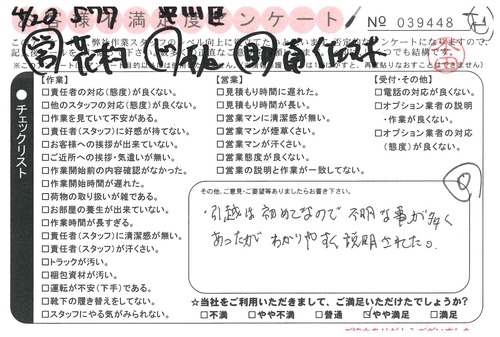 お客様の満足度アンケート
No 039448
●チェックリスト
【作業】
□責任者の対応(態度)が良くない。
□他のスタッフの対応(態度)が良くない。
□作業を見ていて不安がある。
□責任者(スタッフ)に好感が持てない。
□お客様への挨拶が出来ていない。
□ご近所への挨拶・気遣いが無い。
□作業開始前の内容確認がなかった。
□作業開始時間が遅れた。
□荷物の取り扱いが雑である。
□お部屋の養生が出来ていない。
□作業時間が長すぎる。
□責任者(スタッフ)に清潔感が無い。
□責任者(スタッフ)が汗くさい。
□トラックが汚い。
□梱包資材が汚い。
□運転が不安(下手)である。
□靴下の履き替えをしてない。
□スタッフにやる気がみられない。
【営業】
□見積もり時間に遅れた。
□見積もり時間が長い。
□営業マンに清潔感が無い。
□営業マンが煙草くさい。
□営業マンが汗くさい。
□営業態度が良くない。
□営業の説明と作業が一致してない。
【受付・その他】
□電話の対応が良くない。
□オプション業者の説明
・作業が良くない。
□オプション業者の対応
(態度)が良くない。
その他、ご意見・ご要望等ありましたらお書き下さい。
・引越は初めてなので不明な事が多く
あったが わかりやすく説明された。
☆当社をご利用いただきまして、ご満足いただけたでしょうか?
□不満 □やや不満 □普通 ☑やや満足 □満足